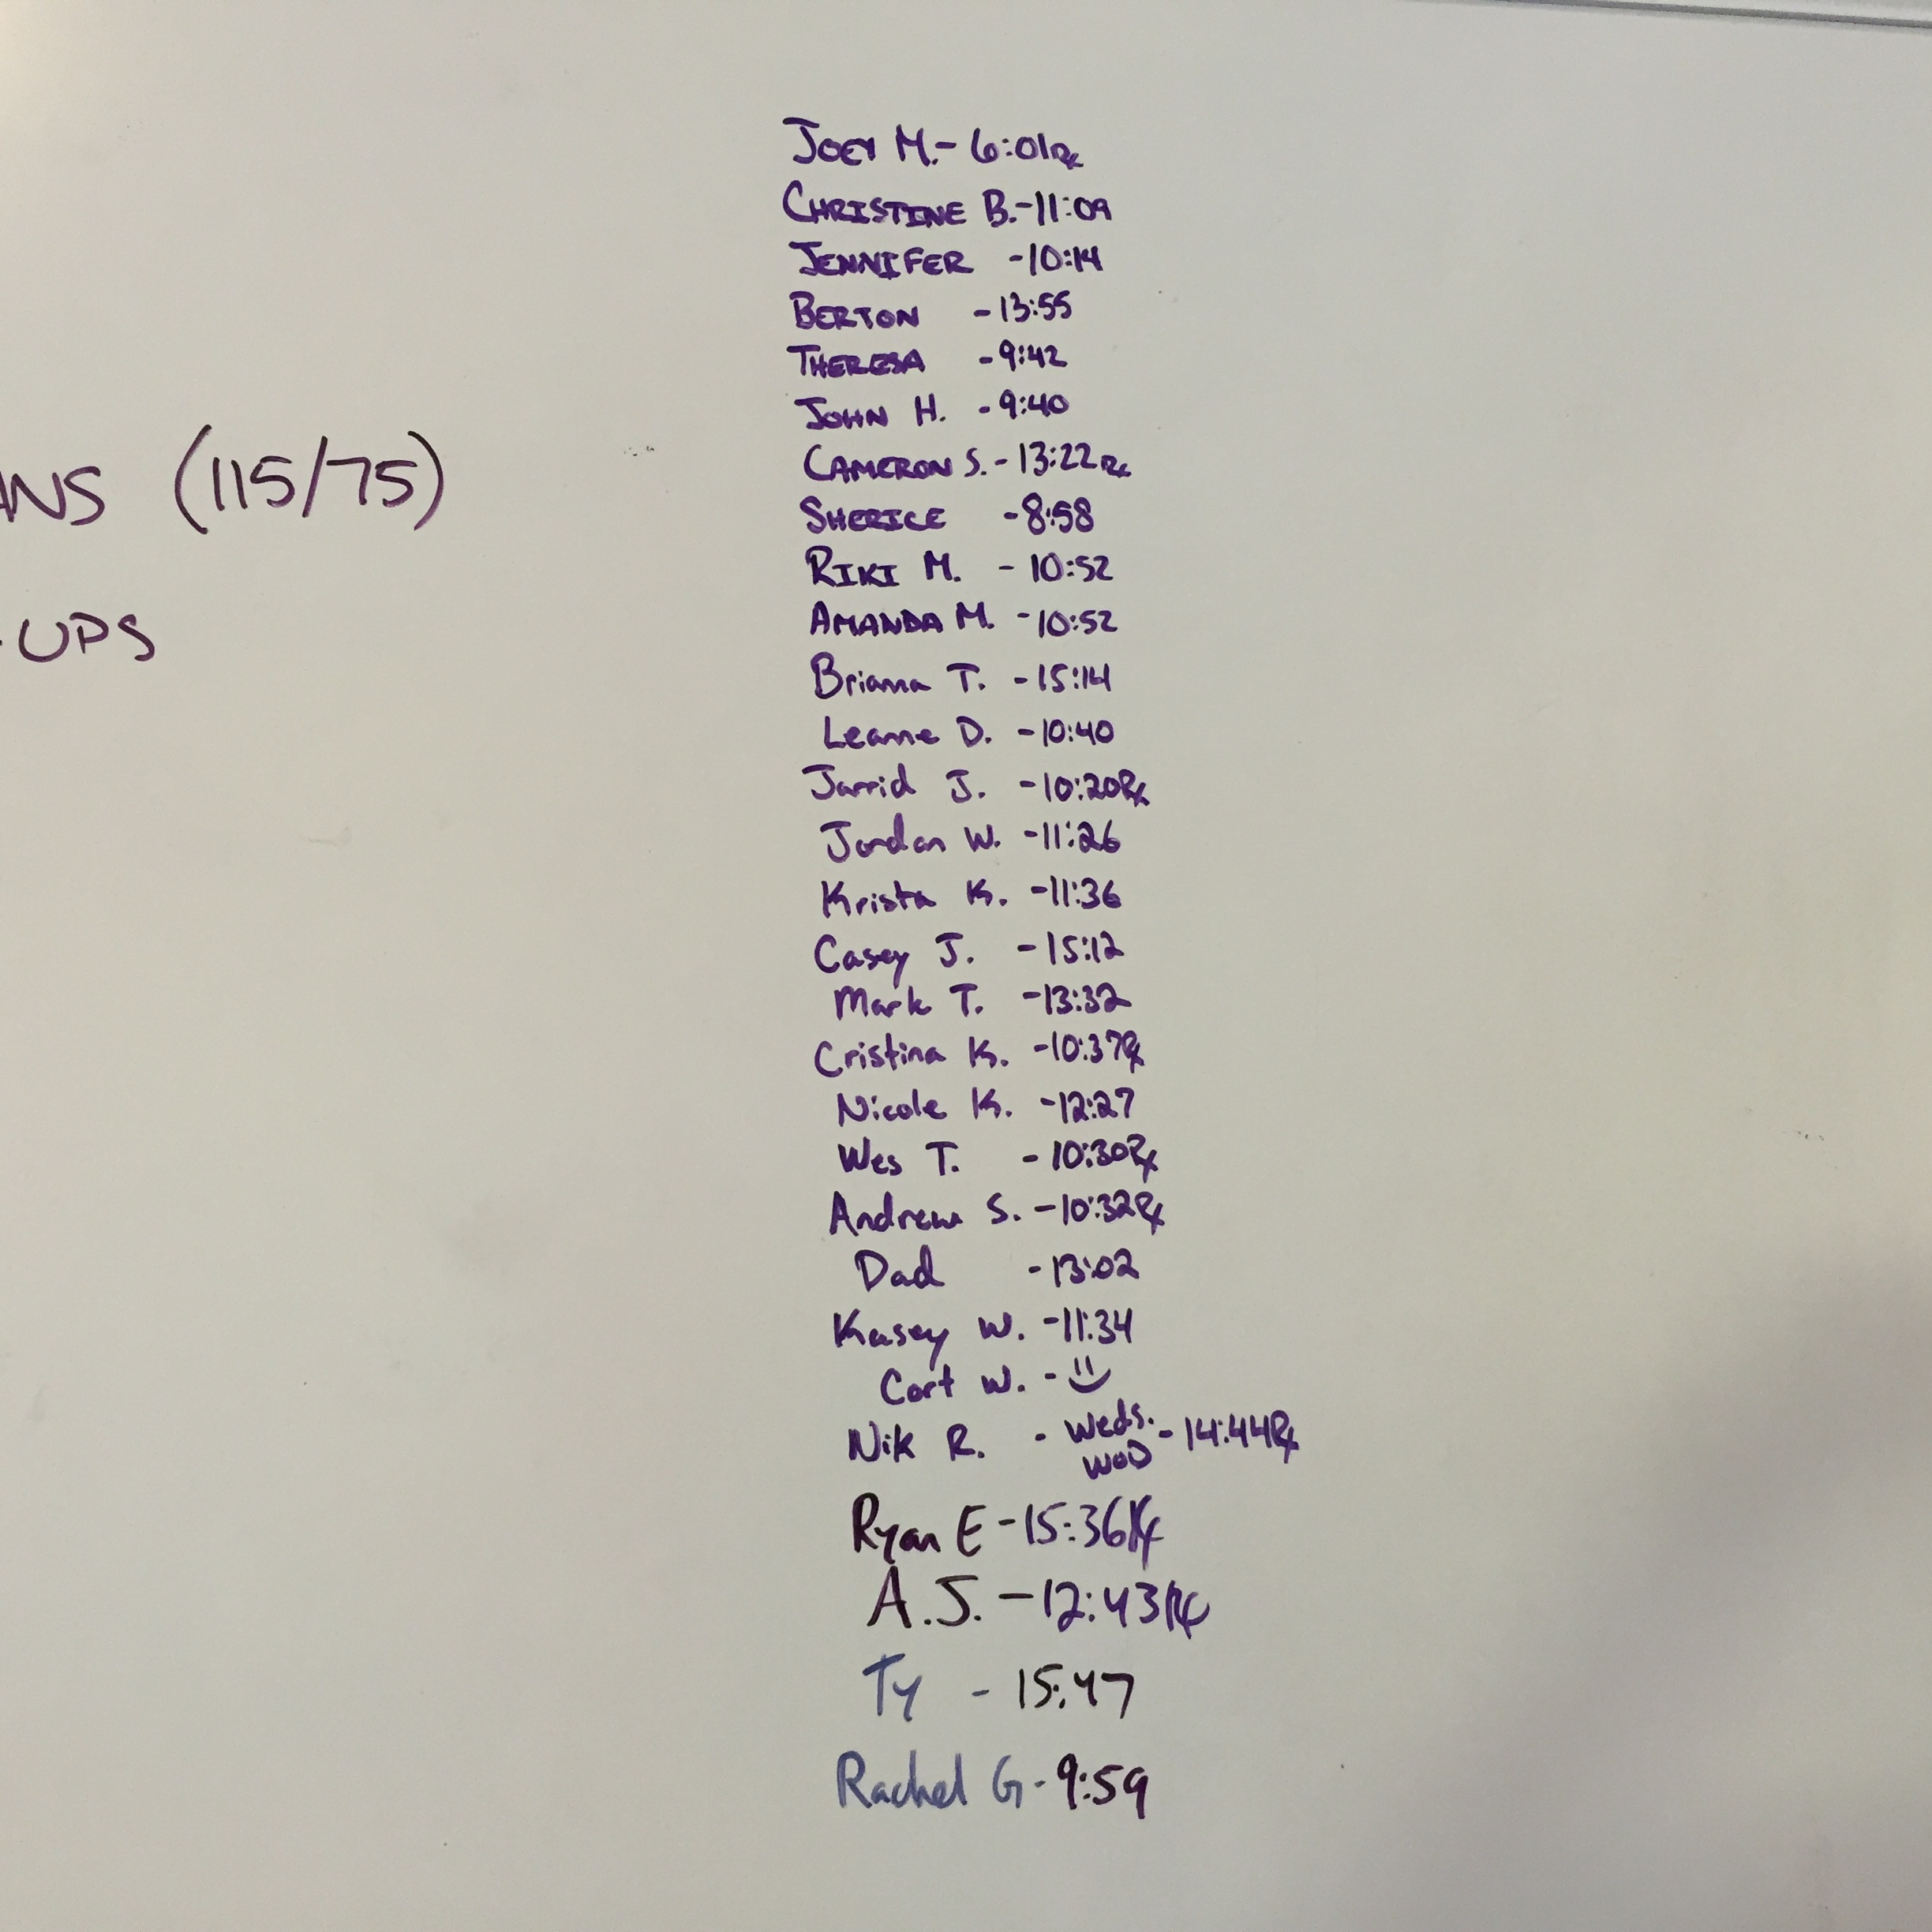 JOEY M. - 6:01 Rx
CHRISTINE B. - 11:09
JENNIFER - 10:14
BERTON - 13:55
THERESA - 9:42
JOHN H. - 9:40
ANS (115/75)
CAMERON S. - 13:22 Rx
SHERICE - 8:58
RIKI M. - 10:52
AMANDA M. - 10:52
-UPS
Briana T. - 15:14
Leanne D. - 10:40
Jarrid J. - 10:20 Rx
Jordan W. - 11:26
Krista K. - 11:36
Casey J. - 15:12
Mark T. - 13:32
Cristina K. - 10:37 Rx
Nicole K. - 12:27
Wes T. - 10:30 Rx
Andrew S. - 10:32 Rx
Dad - 13:02
Kasey W. - 11:34
Cort W. - :)
Nik R. - Weds. WOD - 14:44 Rx
Ryan E - 15:36 Rx
A.J. - 12:43 Rx
Ty - 15:47
Rachel G - 9:59